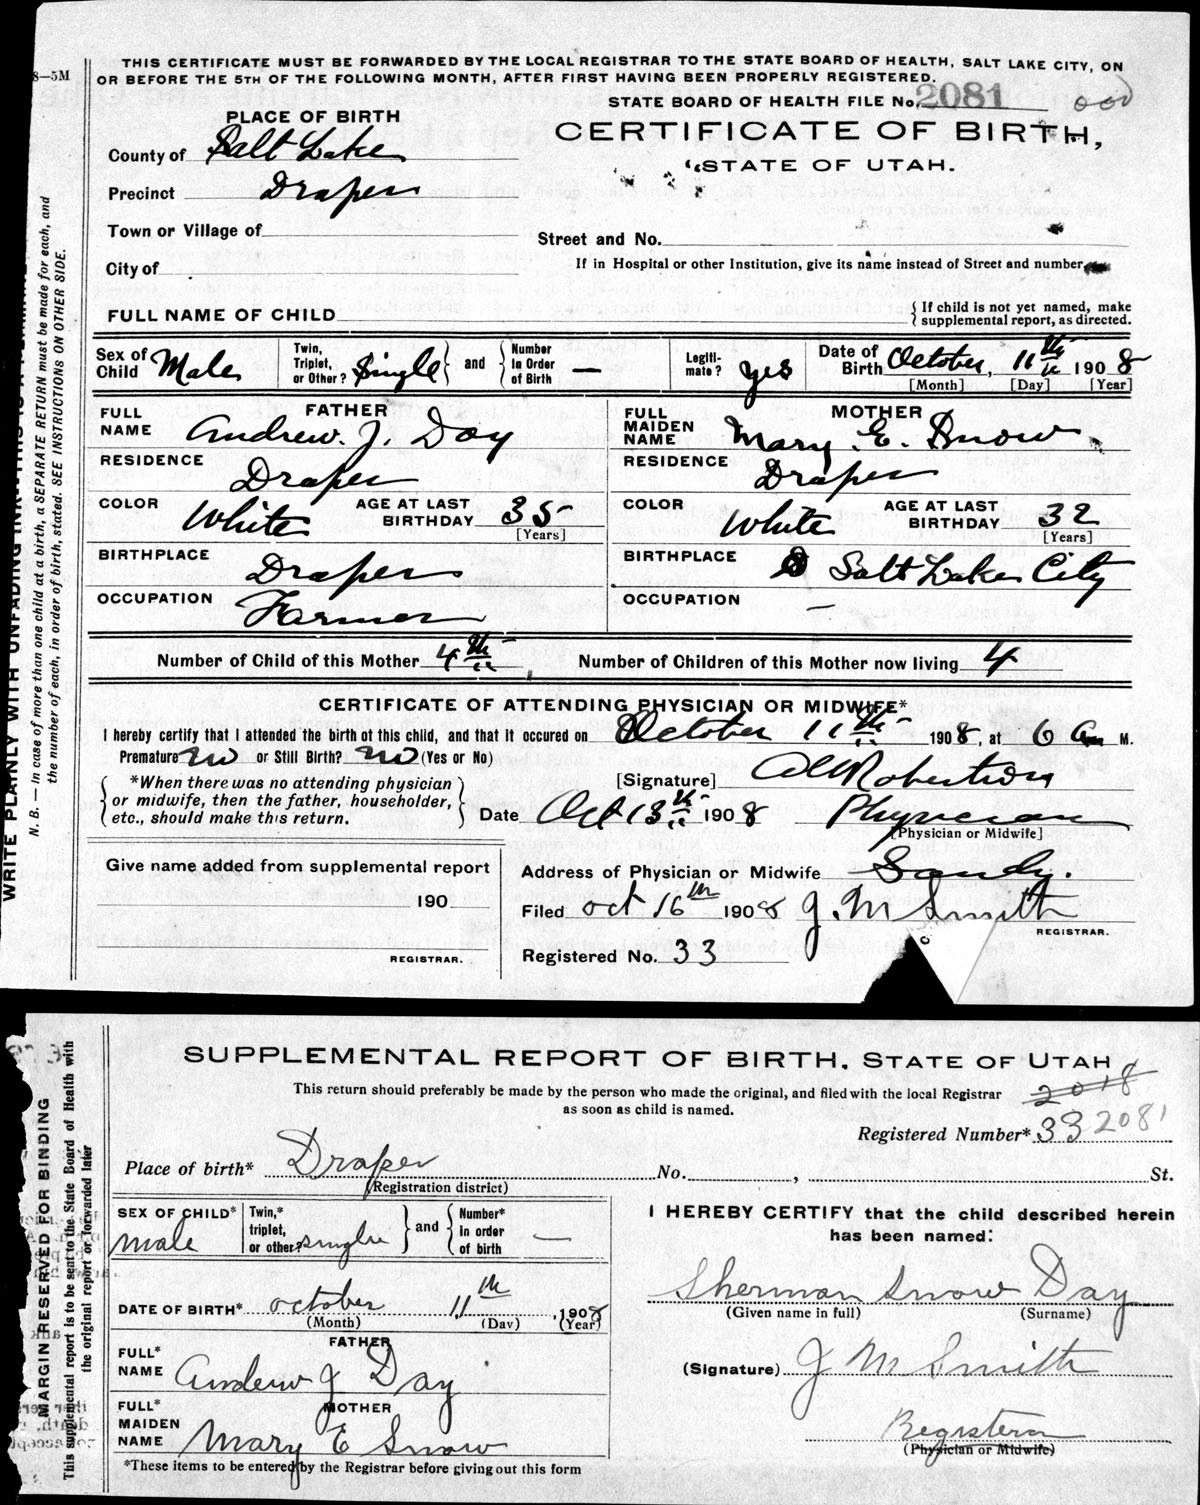 8—5M
THIS CERTIFICATE MUST BE FORWARDED BY THE LOCAL REGISTRAR TO THE STATE BOARD OF HEALTH, SALT LAKE CITY, ON
OR BEFORE THE 5TH OF THE FOLLOWING MONTH, AFTER FIRST HAVING BEEN PROPERLY REGISTERED.
STATE BOARD OF HEALTH FILE No. 2081
PLACE OF BIRTH
CERTIFICATE OF BIRTH,
STATE OF UTAH.
County of Salt Lake
Precinct Draper
Town or Village of
Street and No.
City of
If in Hospital or other Institution, give its name instead of Street and number
FULL NAME OF CHILD
{ If child is not yet named, make
supplemental report, as directed.
Sex of Child Male
Twin, Triplet, or Other? Single } and { Number in Order of Birth —
Legitimate? yes
Date of Birth October, 11th 1908
[Month] [Day] [Year]
FATHER
FULL NAME Andrew. J. Day
RESIDENCE Draper
COLOR White AGE AT LAST BIRTHDAY 35
[Years]
BIRTHPLACE Draper
OCCUPATION Farmer
MOTHER
FULL MAIDEN NAME Mary. E. Snow
RESIDENCE Draper
COLOR White AGE AT LAST BIRTHDAY 32
[Years]
BIRTHPLACE Salt Lake City
OCCUPATION —
Number of Child of this Mother 4th Number of Children of this Mother now living 4
CERTIFICATE OF ATTENDING PHYSICIAN OR MIDWIFE*
I hereby certify that I attended the birth of this child, and that it occured on October 11th 1908, at 6 A M.
Premature no or Still Birth? no (Yes or No)
{ *When there was no attending physician
or midwife, then the father, householder,
etc., should make this return. }
[Signature] Robertson
Date Oct 13th 1908 Physician
[Physician or Midwife]
Give name added from supplemental report
190
REGISTRAR.
Address of Physician or Midwife Sandy.
Filed oct 16th 1908 J. M Smith
REGISTRAR.
Registered No. 33
WRITE PLAINLY WITH UNFADING INK—THIS IS A
N. B. — In case of more than one child at a birth, a SEPARATE RETURN must be made for each, and
the number of each, in order of birth, stated. SEE INSTRUCTIONS ON OTHER SIDE.
SUPPLEMENTAL REPORT OF BIRTH, STATE OF UTAH
This return should preferably be made by the person who made the original, and filed with the local Registrar
as soon as child is named.
2018
Registered Number* 33 2081
Place of birth* Draper No. , St.
(Registration district)
SEX OF CHILD* male
Twin,* triplet, or other? single } and { Number* in order of birth —
DATE OF BIRTH* october 11th, 1908
(Month) (Day) (Year)
FATHER
FULL* NAME Andew J Day
MOTHER
FULL* MAIDEN NAME Mary E Snow
*These items to be entered by the Registrar before giving out this form
I HEREBY CERTIFY that the child described herein
has been named:
Sherman Snow Day
(Given name in full) (Surname)
(Signature) J M Smith
Registerar
(Physician or Midwife)
MARGIN RESERVED FOR BINDING
This supplemental report is to be sent to the State Board of Health with
the original report or forwarded later